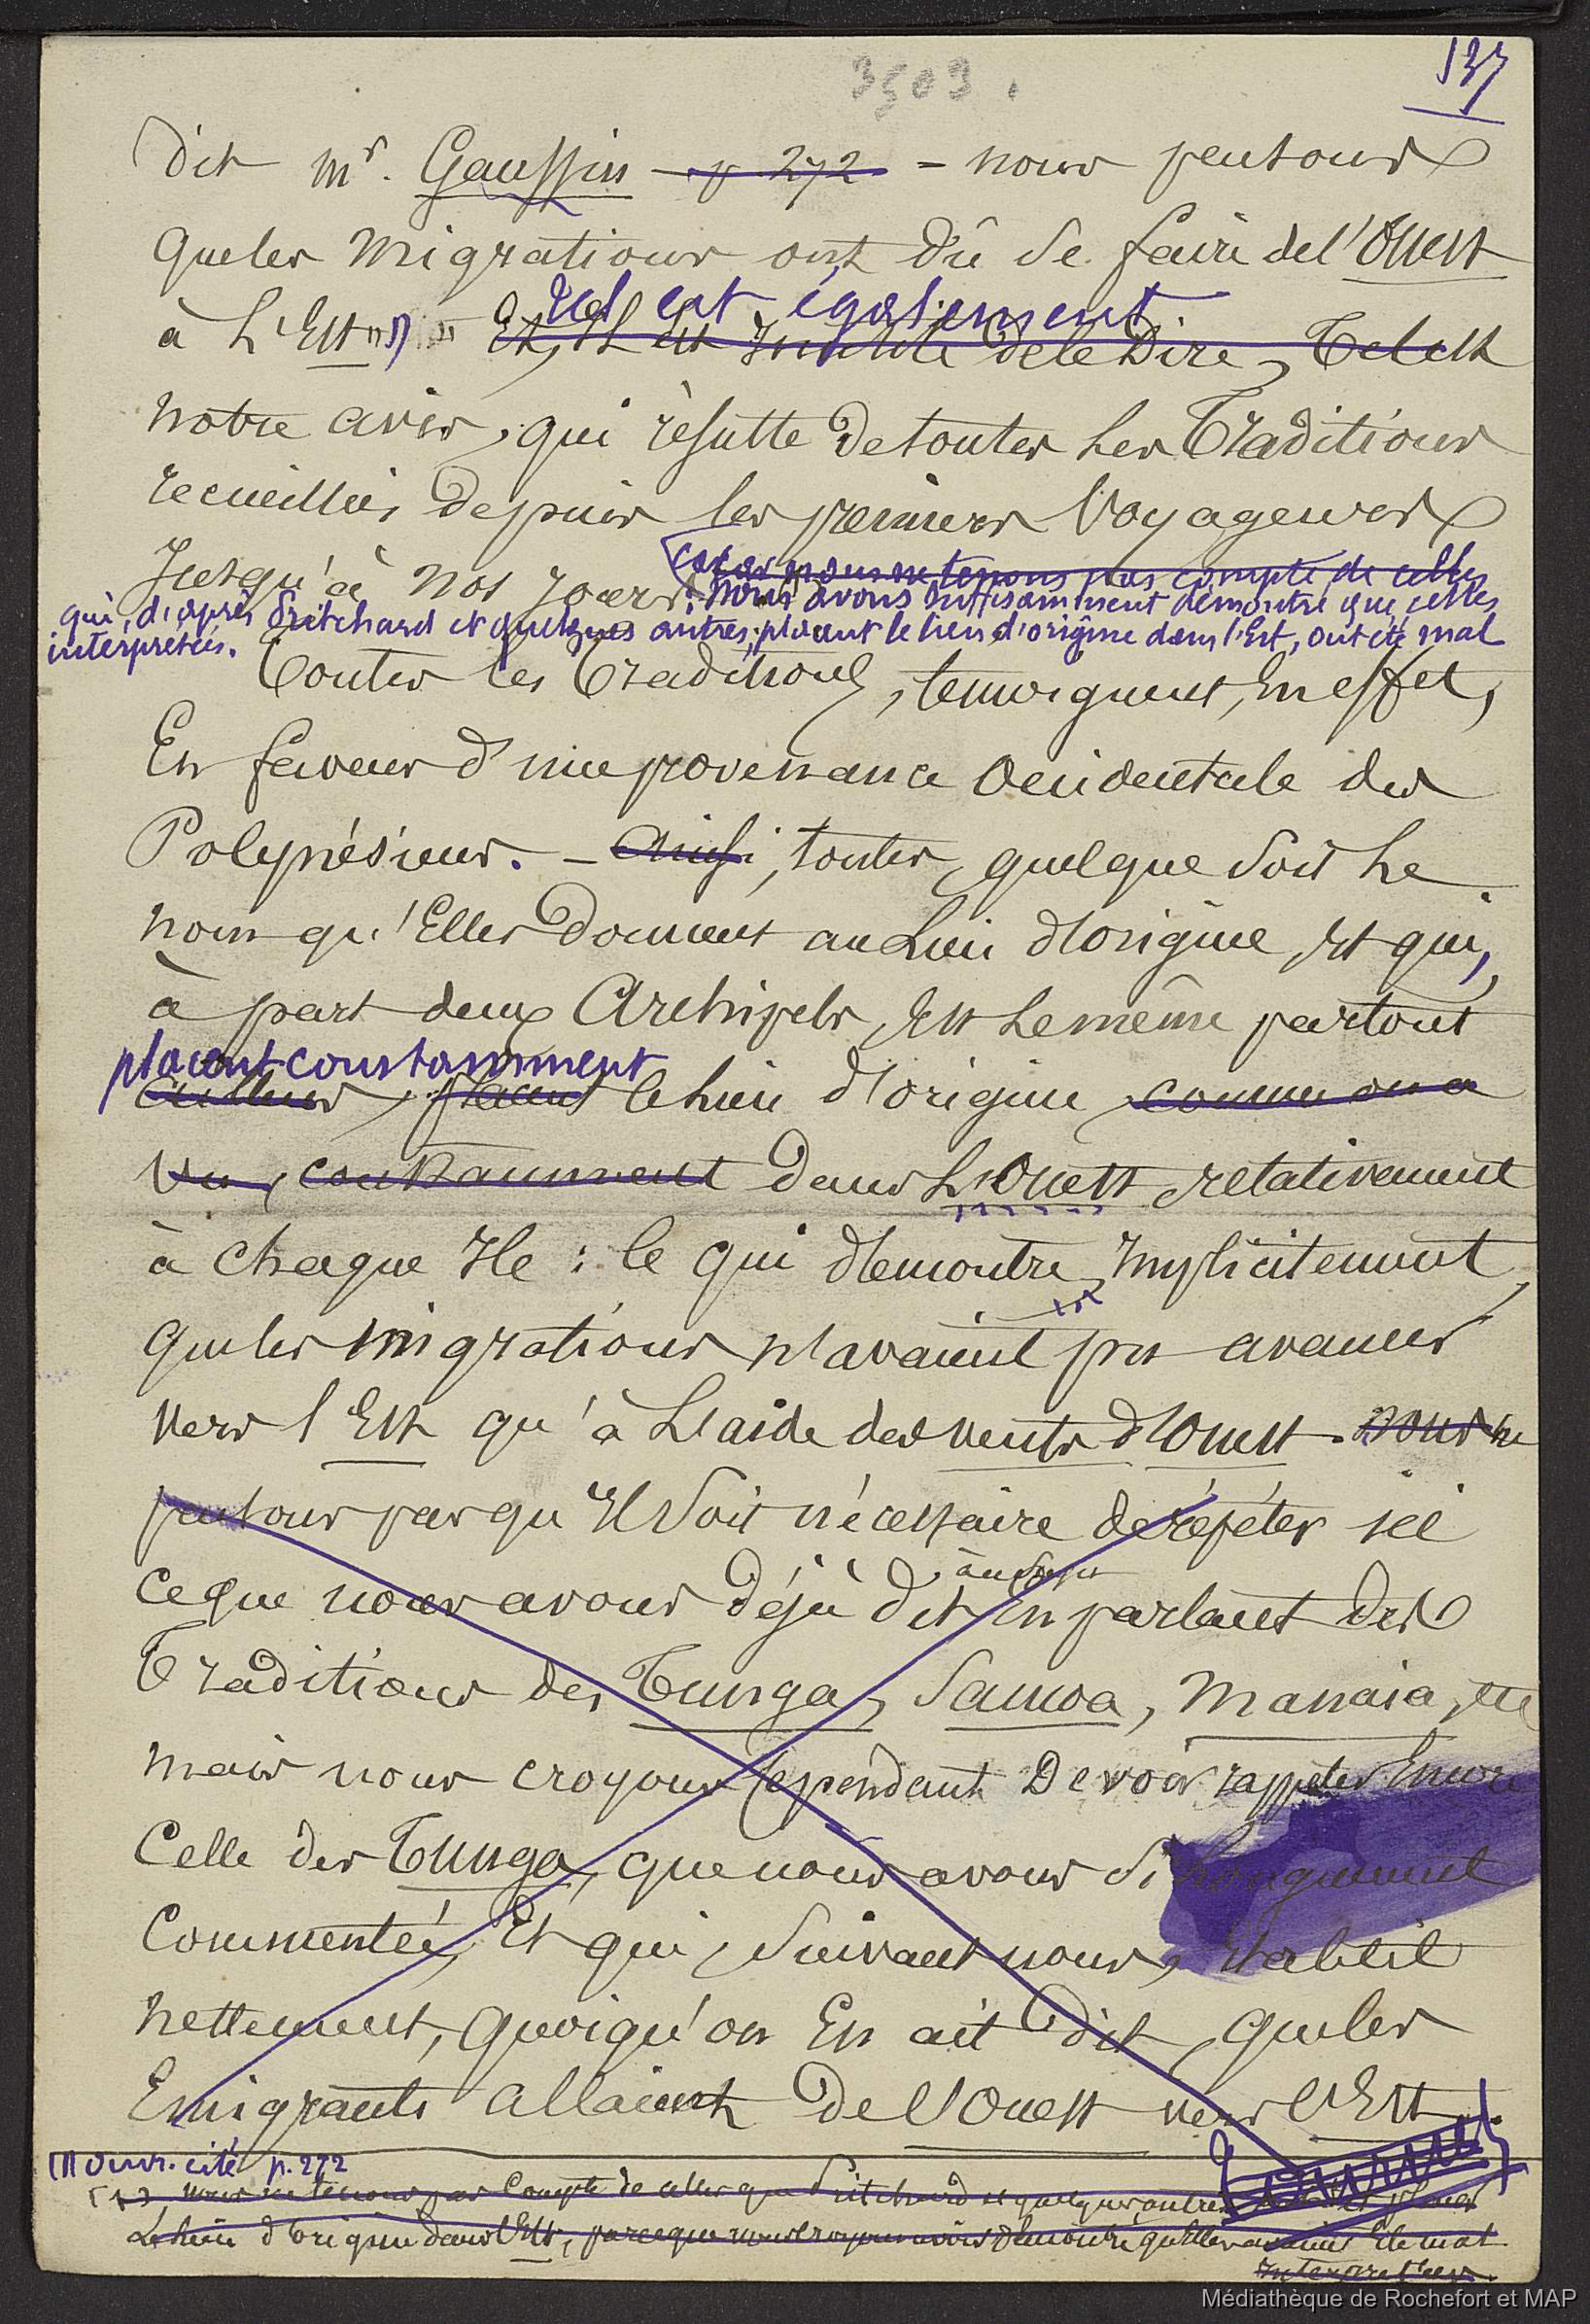 3503.
137
Dit Mr. Gaussin - p 272 - nous pensons
que les migrations ont dû se faire de l'Ouest
à l'Est" 1) " Et, Il est Inutile de le Dire, Tel est
Tel est également
notre avis, qui résulte de toutes les Traditions
recueillies, depuis les premiers Voyageurs
Jusqu'à nos jours
car nous ne tenons pas compte de celles
: Nous avons suffisamment démontré que celles
qui, d'après Pritchard et quelques autres, placent le lieu d'origine dans l'Est, ont été mal
interprétées.
Toutes les Traditions, témoignent, En effet,
En faveur d'une provenance Occidentale des
Polynésiens. - Ainsi, toutes, quelque soit le
nom qu'Elles Donnent au Lieu d'origine, Et qui,
à part deux Archipels, Est le même partout
placent constamment
ailleurs, placent le lieu d'origine, comme on a
vu, constamment dans L'Ouest relativement
à chaque Ile : Ce qui démontre Implicitement
que les migrations n'avaient pu avancer
vers l'Est qu'à L'aide des vents d'Ouest. Nous ne
pensons pas qu'Il soit nécessaire de répéter ici
ce que nous avons Déjà Dit en parlant des
Traditions des Tunga, Samoa, Manaia, etc
mais nous croyons Cependant Devoir rappeler Encore
Celle des Tunga, que nous avons si longuement
Commentée, Et qui, suivant nous, Etablit
nettement, quoiqu'on En ait Dit, que les
Emigrants allaient De l'Ouest vers l'Est.
(1) Ouvr. cité p. 272
(1) nous ne tenons pas compte de celles que Pritchard et quelques autres
Le lieu d'origine dans l'Est, parceque nous croyons avoir démontré qu'Elles avaient Eté mal
Interprétées.
Médiathèque de Rochefort et MAP